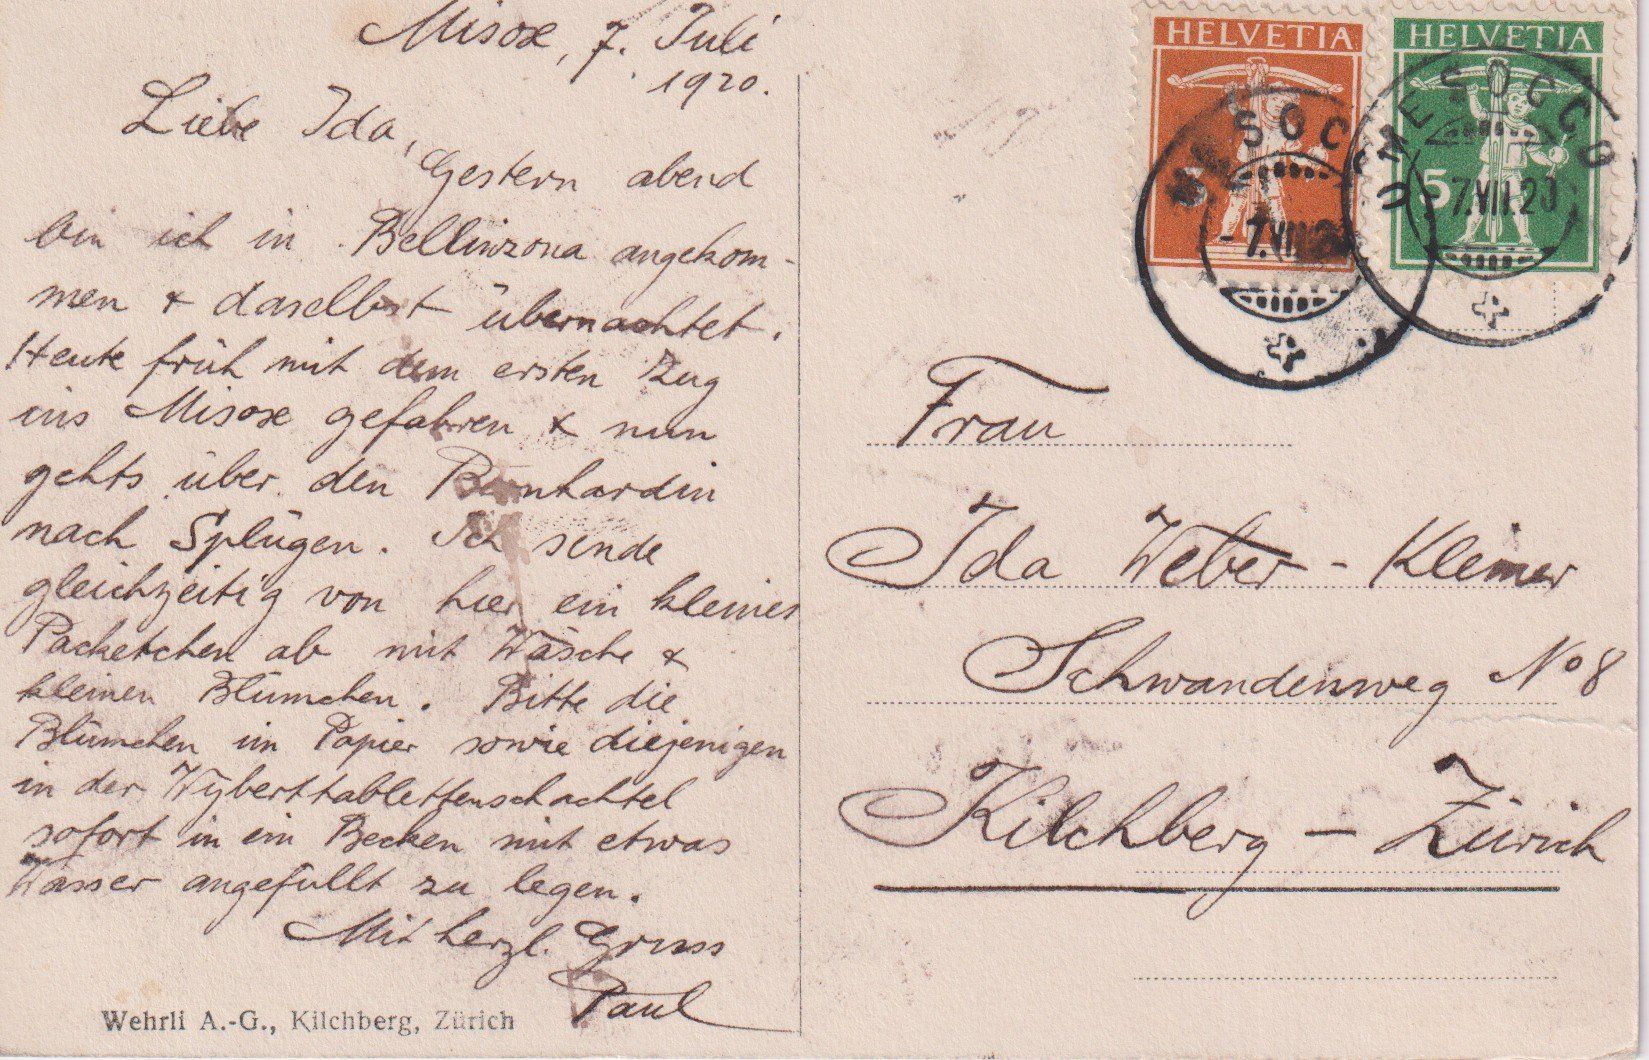 Misox, 7. Juli
1920.
Liebe Ida,
Gestern abend
bin ich in Bellinzona angekom-
men & daselbst übernachtet.
Heute früh mit dem ersten Zug
ins Misox gefahren & nun
gehts über den Bernhardin
nach Splügen. Ich sende
gleichzeitig von hier ein kleines
Packetchen ab mit Wäsche &
kleinen Blümchen. Bitte die
Blümchen im Papier sowie diejenigen
in der Wyberttablettenschachtel
sofort in ein Becken mit etwas
Wasser angefüllt zu legen.
Mit herzl. Gruss
Paul
Wehrli A.-G., Kilchberg, Zürich
HELVETIA
HELVETIA
5
MESOCCO
-7.VII.20
MESOCCO
-7.VII.20
Frau
Ida Weber-
Schwandenweg No 8
Kilchberg - Zürich